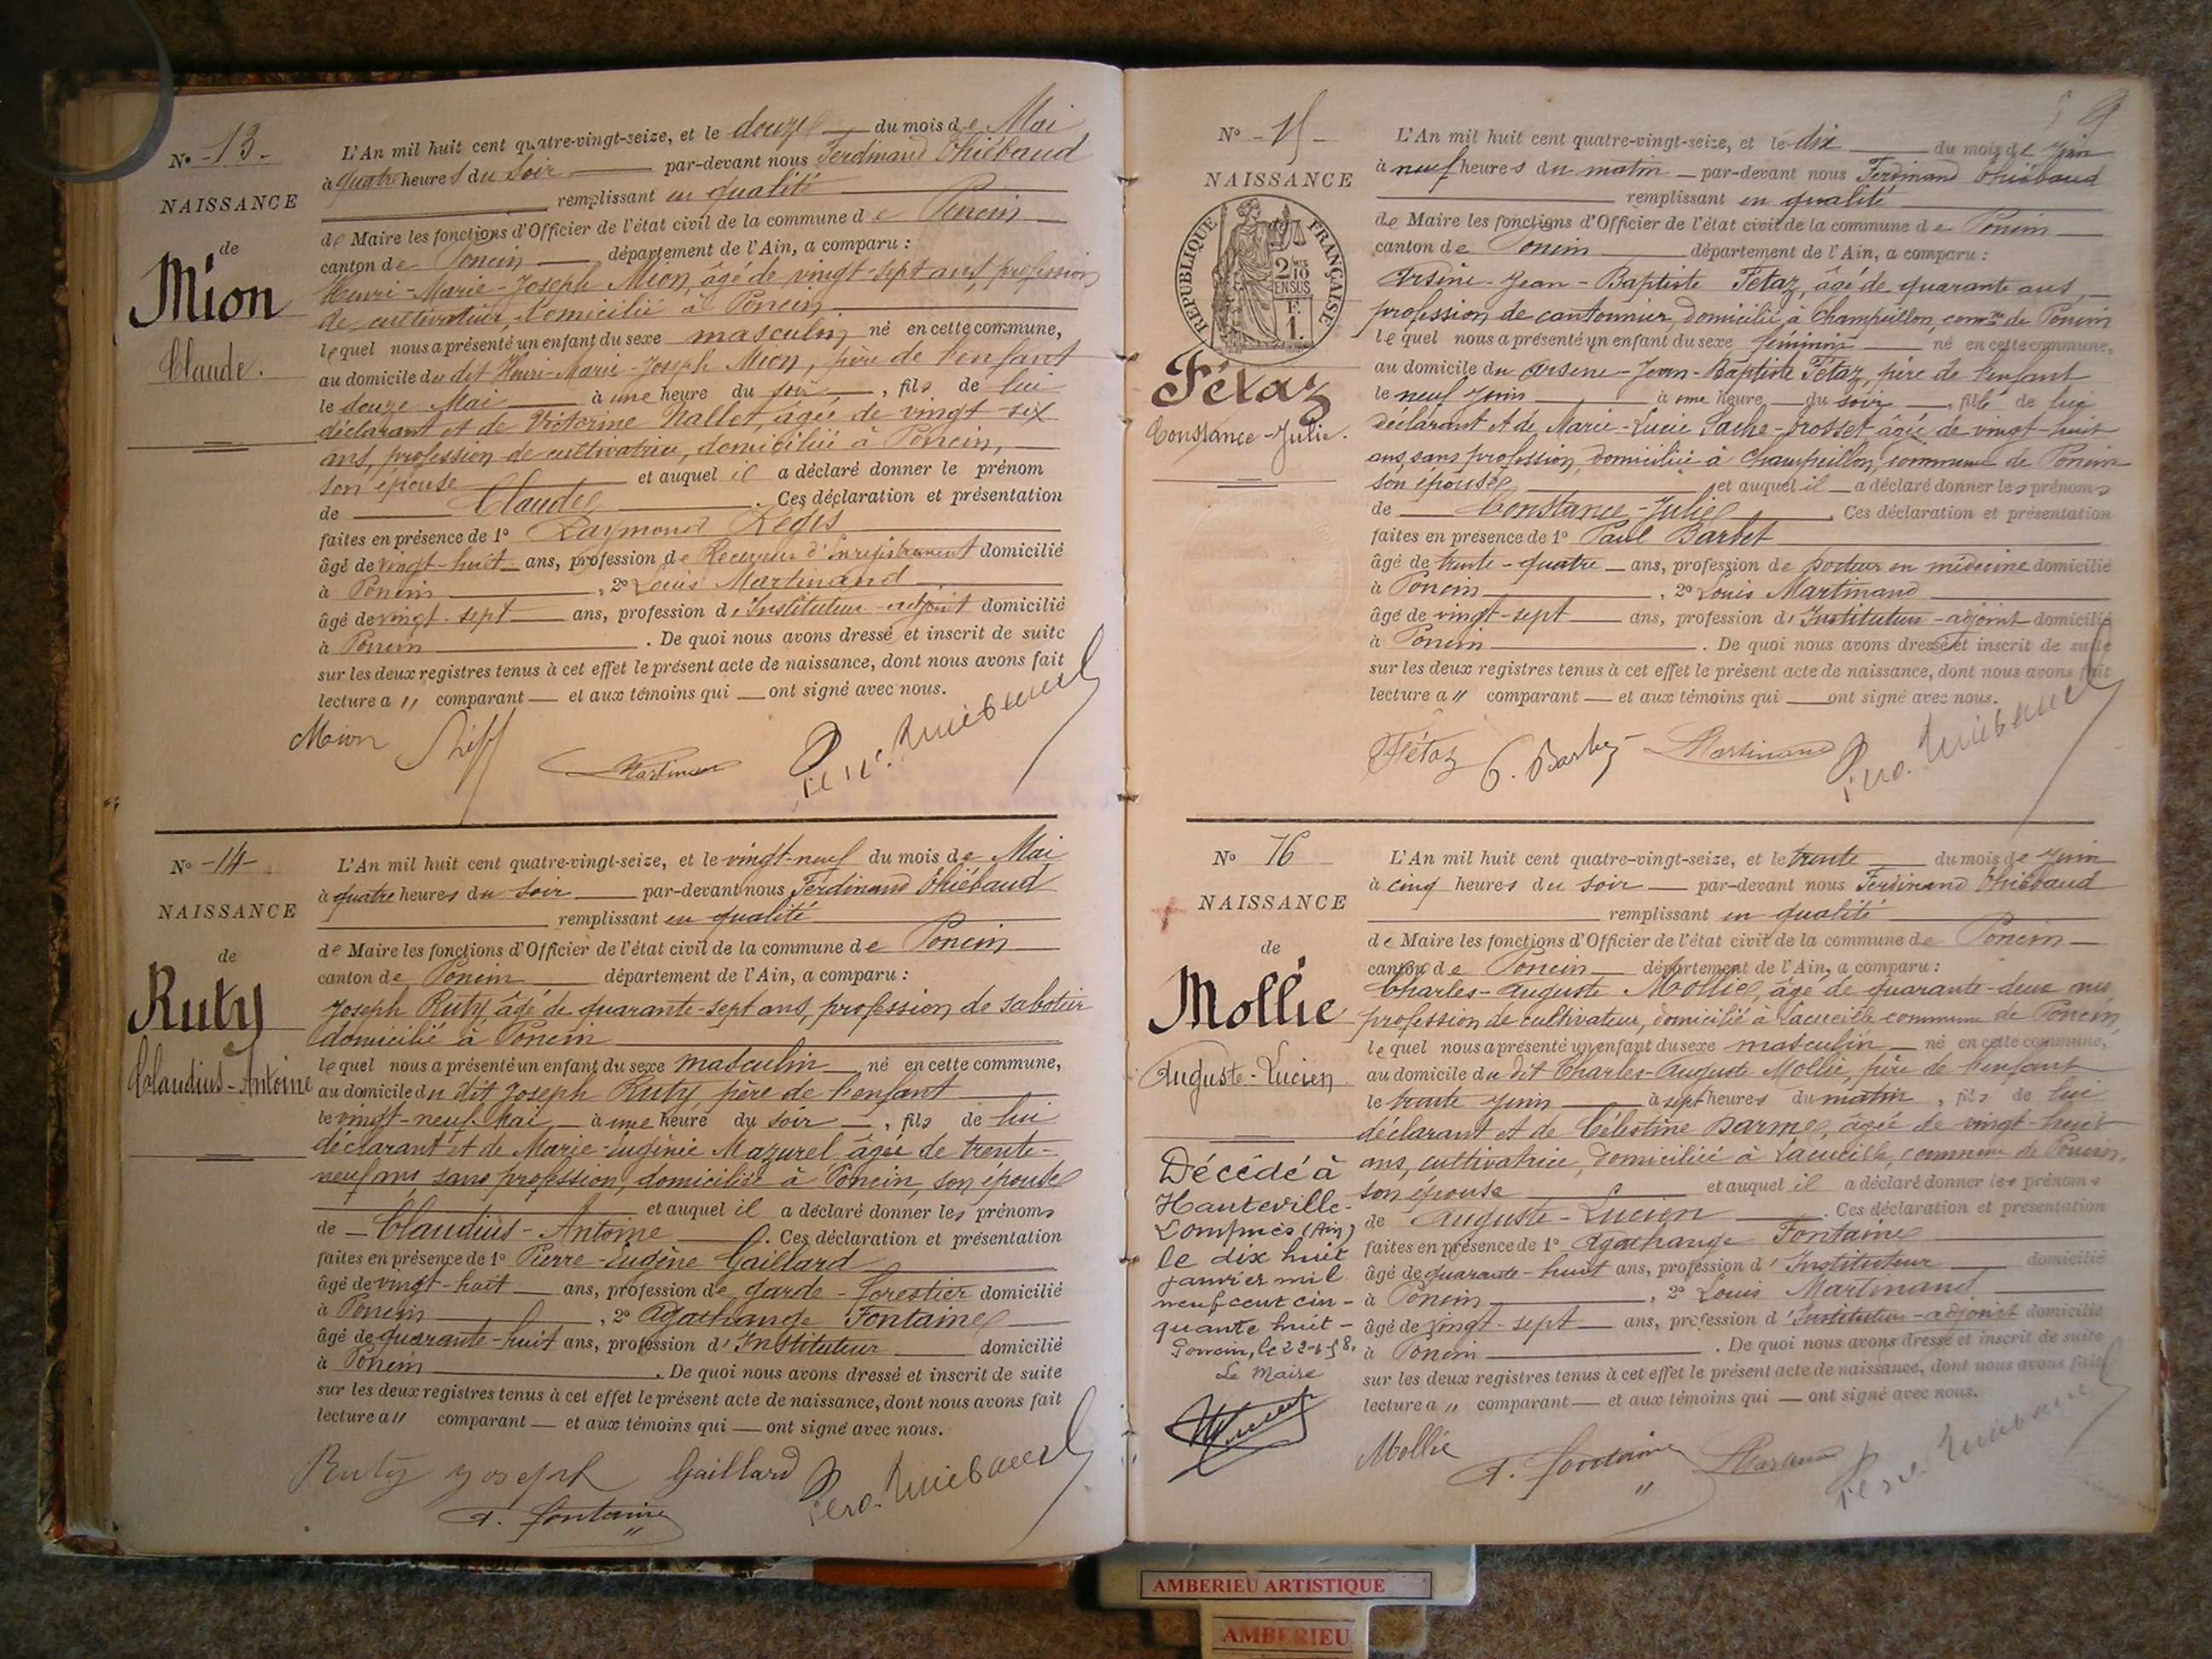 N° -13-
NAISSANCE
de
Mion
Claude.
L'An mil huit cent quatre-vingt-seize, et le douze du mois de Mai
à quatre heures du soir par-devant nous Ferdinand Thiébaud
remplissant en qualité
de Maire les fonctions d'Officier de l'état civil de la commune de Poncin
canton de Poncin département de l'Ain, a comparu :
Henri-Marie-Joseph Mion, âgé de vingt-sept ans, profession
de cultivateur, domicilié à Poncin
lequel nous a présenté un enfant du sexe masculin né en cette commune,
au domicile du dit Henri-Marie-Joseph Mion, père de l'enfant
le douze Mai à une heure du soir, fils de lui
déclarant et de Victorine Nallet, âgée de vingt-six
ans, profession de cultivatrice, domiciliée à Poncin,
son épouse et auquel il a déclaré donner le prénom
de Claude. Ces déclaration et présentation
faites en présence de 1° Raymond Régis
âgé de vingt-huit ans, profession de Receveur d'Enregistrement domicilié
à Poncin, 2° Louis Martinand
âgé de vingt-sept ans, profession d'Instituteur-adjoint domicilié
à Poncin. De quoi nous avons dressé et inscrit de suite
sur les deux registres tenus à cet effet le présent acte de naissance, dont nous avons fait
lecture a " comparant — et aux témoins qui — ont signé avec nous.
Mion Martinand Ferd. Thiébaud
N° -14-
NAISSANCE
de
Ruty
Claudius-Antoine
L'An mil huit cent quatre-vingt-seize, et le vingt-neuf du mois de Mai
à quatre heures du soir par-devant nous Ferdinand Thiébaud
remplissant en qualité
de Maire les fonctions d'Officier de l'état civil de la commune de Poncin
canton de Poncin département de l'Ain, a comparu :
Joseph Ruty âgé de quarante-sept ans, profession de sabotier
domicilié à Poncin
lequel nous a présenté un enfant du sexe masculin né en cette commune,
au domicile du dit Joseph Ruty père de l'enfant
le vingt-neuf Mai à une heure du soir, fils de lui
déclarant et de Marie-Eugénie Mazurel âgée de trente-
neuf ans sans profession, domiciliée à Poncin, son épouse
et auquel il a déclaré donner les prénoms
de Claudius-Antoine. Ces déclaration et présentation
faites en présence de 1° Pierre-Eugène Gaillard
âgé de vingt-huit ans, profession de garde-forestier domicilié
à Poncin, 2° Agathange Fontaine
âgé de quarante-huit ans, profession d'Instituteur domicilié
à Poncin. De quoi nous avons dressé et inscrit de suite
sur les deux registres tenus à cet effet le présent acte de naissance, dont nous avons fait
lecture a " comparant — et aux témoins qui — ont signé avec nous.
Ruty Joseph Gaillard Ferd. Thiébaud
A. Fontaine
9
N° -15-
NAISSANCE
RÉPUBLIQUE FRANÇAISE
2/10 EN SUS
Fétaz
Constance-Julie.
L'An mil huit cent quatre-vingt-seize, et le dix du mois de Juin
à neuf heures du matin par-devant nous Ferdinand Thiébaud
remplissant en qualité
de Maire les fonctions d'Officier de l'état civil de la commune de Poncin
canton de Poncin département de l'Ain, a comparu :
Arsène-Jean-Baptiste Fétaz, âgé de quarante ans,
profession de cantonnier, domicilié à Champeillon, comne de Poncin
lequel nous a présenté un enfant du sexe féminin né en cette commune,
au domicile du Arsène-Jean-Baptiste Fétaz, père de l'enfant
le neuf Juin à une heure du soir, fille de lui
déclarant et de Marie-Lucie âgée de vingt-huit
ans, sans profession, domiciliée à Champeillon, commune de Poncin
son épouse et auquel il a déclaré donner les prénoms
de Constance-Julie. Ces déclaration et présentation
faites en présence de 1° Paul Barbet
âgé de trente-quatre ans, profession de docteur en médecine domicilié
à Poncin, 2° Louis Martinand
âgé de vingt-sept ans, profession d'Instituteur-adjoint domicilié
à Poncin. De quoi nous avons dressé et inscrit de suite
sur les deux registres tenus à cet effet le présent acte de naissance, dont nous avons fait
lecture a " comparant — et aux témoins qui — ont signé avec nous.
Fétaz P. Barbet Martinand Ferd. Thiébaud
N° 16
NAISSANCE
de
Mollie
Auguste-Lucien
Décédé à
Hauteville-
Lompnès (Ain)
le dix huit
janvier mil
neuf cent cin-
quante huit-
Poncin, le 22-1-58.
Le Maire
L'An mil huit cent quatre-vingt-seize, et le trente du mois de Juin
à cinq heures du soir par-devant nous Ferdinand Thiébaud
remplissant en qualité
de Maire les fonctions d'Officier de l'état civil de la commune de Poncin
canton de Poncin département de l'Ain, a comparu :
Charles-Auguste Mollie, âgé de quarante-deux ans
profession de cultivateur, domicilié à commune de Poncin
lequel nous a présenté un enfant du sexe masculin né en cette commune,
au domicile du dit Charles-Auguste Mollie, père de l'enfant
le trente Juin à sept heures du matin, fils de lui
déclarant et de Célestine Darme, âgée de vingt-huit
ans, cultivatrice, domiciliée à commune de Poncin,
son épouse et auquel il a déclaré donner les prénoms
de Auguste-Lucien. Ces déclaration et présentation
faites en présence de 1° Agathange Fontaine
âgé de quarante-huit ans, profession d'Instituteur domicilié
à Poncin, 2° Louis Martinand
âgé de vingt-sept ans, profession d'Instituteur-adjoint domicilié
à Poncin. De quoi nous avons dressé et inscrit de suite
sur les deux registres tenus à cet effet le présent acte de naissance, dont nous avons fait
lecture a " comparant — et aux témoins qui — ont signé avec nous.
Mollie A. Fontaine Martinand Ferd. Thiébaud
AMBERIEU ARTISTIQUE
AMBERIEU